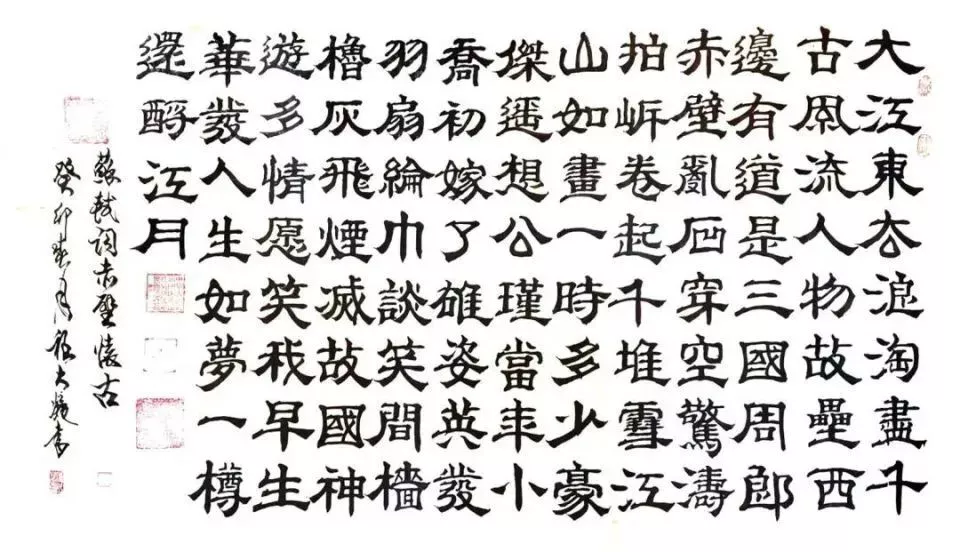 大江東去浪淘盡千
古風流人物故壘西
邊有道是三國周郎
赤壁亂石穿空驚濤
拍岸卷起千堆雪江
山如畫一時多少豪
傑遥想公瑾當年小
喬初嫁了雄姿英發
羽扇綸巾談笑間檣
櫓灰飛煙滅故國神
遊多情愿笑我早生
華發人生如夢一樽
還酹江月
蘇軾詞赤壁懷古
癸卯春月大書